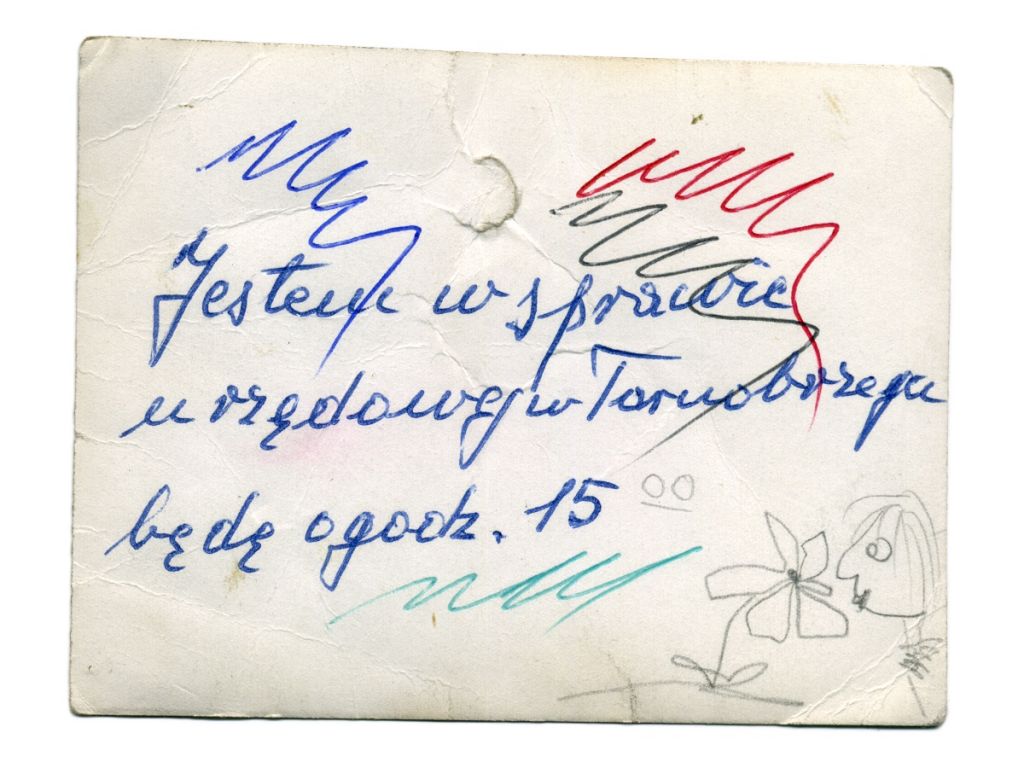 Jestem w sprawie
urzędowej w Tarnobrzegu
będę o godz. 15 00